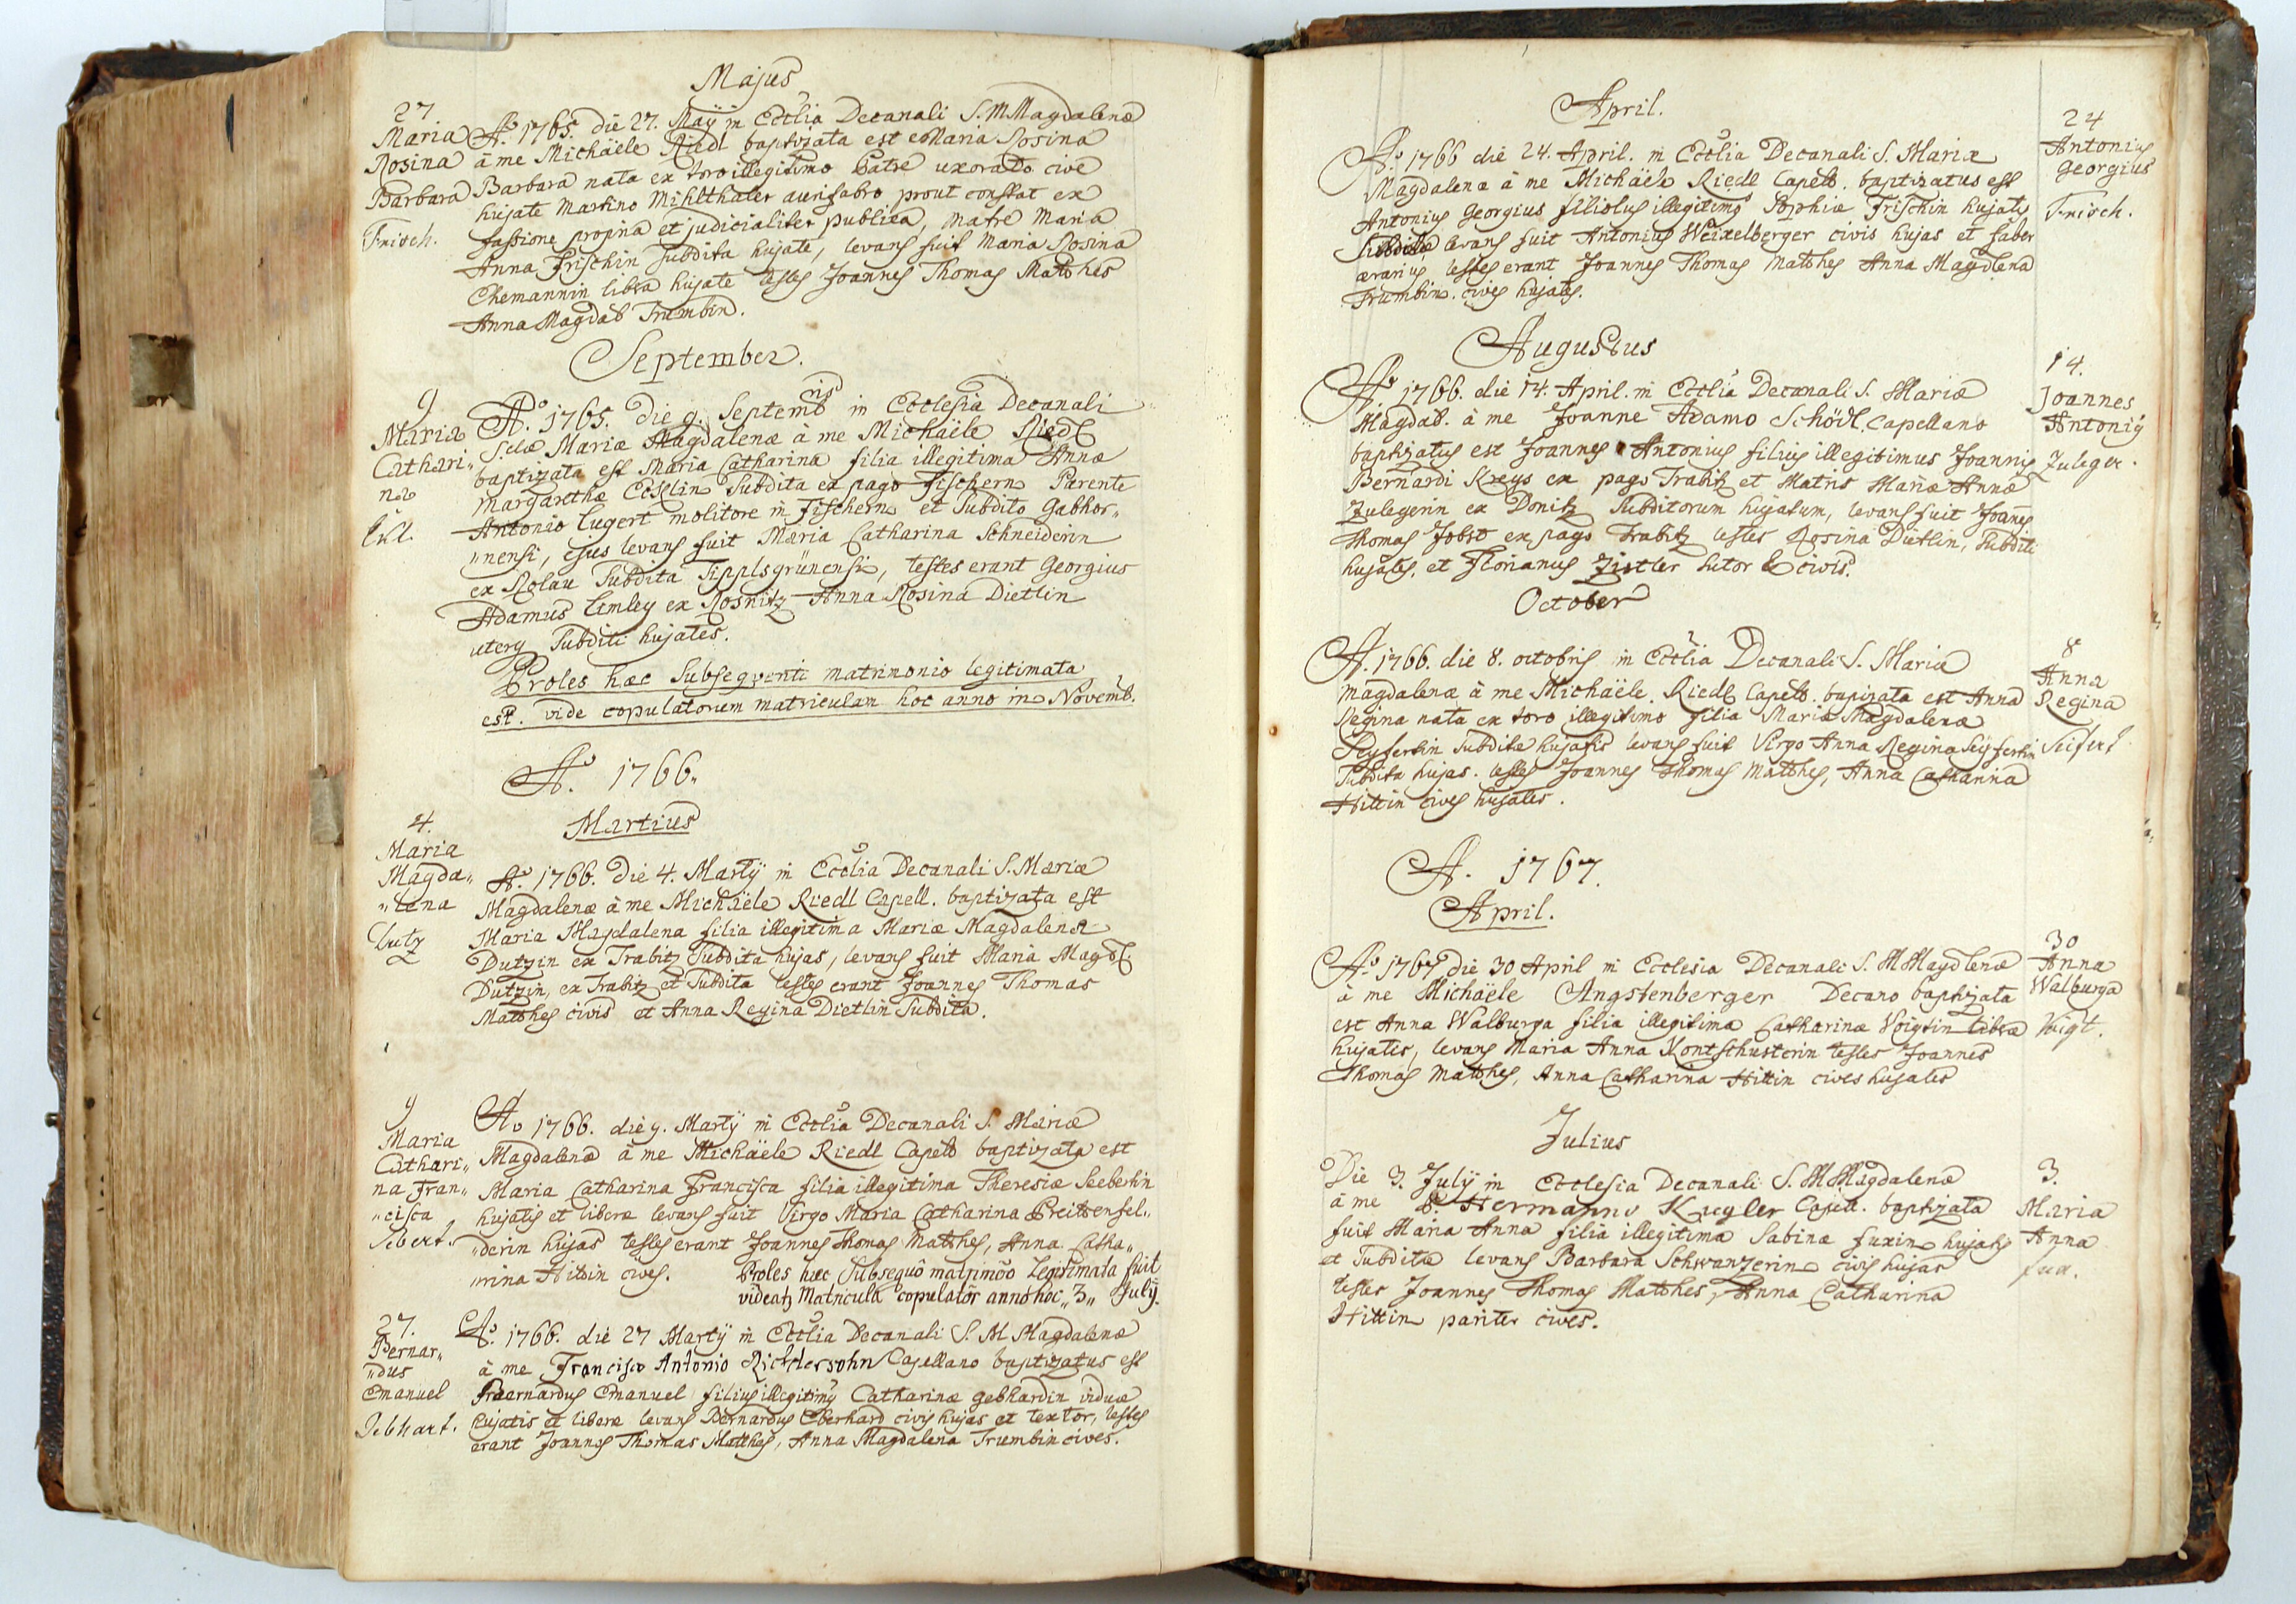 Majus
27
Maria
Rosina
Barbara
Frisch.
Aº 1765. die 27. Maÿ in Ecclia Decanali S. M Magdalenæ
à me Michäele Riedl baptizata est Maria Rosina
Barbara nata ex toro illegitimo Patre uxorato cive
hujate Martino Mihlthaler aurifabro prout constat ex
fassione propria et judicialiter publica, Matre Maria
Anna Frischin subdita hujate, levans fuit Maria Rosina
Chemannin libra hujate testes Joannes Thomas Matthes
Anna Magdal Trumbin.
September.
9
Maria
Cathari„
na
Aº. 1765. die 9. Septembris in Ecclesia Decanali
S.ctæ Mariæ Magdalenæ à me Michäele Riedl
baptizata est Maria Catharina filia illegitima Annæ
Margarethæ Subdita ex pago Fischern Parente
Antonio Lugert molitore in Fischern et Subdito Gabhor„
„nensi, ejus levans fuit Maria Catharina Schneiderin
ex Rolau Subdita Tipplsgrünensi, testes erant Georgius
Adamus Lemley ex Rosnitz Anna Rosina Dietlin
uterq Subditi hujates.
Proles hæc Subsequenti matrimonio legitimata
est. vide copulatorum matriculam hoc anno in Novemb.
Aº. 1766„
Martius
4.
Maria
Magda„
„lena
Dutz
Aº. 1766. die 4. Martÿ in Ecclia Decanali S. Mariæ
Magdalenæ à me Michäele Riedl Capell. baptizata est
Maria Magdalena filia illegitima Mariæ Magdalenæ
Dutzin ex Trabitz Subdita hujas, levans fuit Maria Magdl.
Dutzin, ex Trabitz et Subdita testes erant Joannes Thomas
Matthes civis et Anna Regina Dietlin Subdita.
9
Maria
Cathari„
na Fran„
„cisca
Sebert.
Aº 1766. die 9. Martÿ in Ecclia Decanali S. Mariæ
Magdalenæ à me Michäele Riedl Capell baptizata est
Maria Catharina Francisca filia illegitima Theresiæ Seebertin
hujatis et liberæ levans fuit Virgo Maria Catharina Breittenfel„
„derin hujas testes erant Joannes Thomas Matthes, Anna Catha„
„rina Hittin cives. Proles hæc Subsequô matrimôo Legitimata fuit
videatʒ Matricula copulatôr anno hoc „3„ Julÿ.
27.
Bernar„
„dus
Emanuel
Gebhart.
Aº. 1766. die 27 Martÿ in Ecclia Decanali S. M Magdalenæ
à me Francisco Antonio Richtersohn Capellano baptizatus est
Bernardus Emanuel filius illegitimus Catharinæ Gebhardin viduæ
hujatis et liberæ levans Bernardus Eberhard civis hujas et textor, testes
erant Joannes Thomas Matthes, Anna Magdalena Trumbin cives.
April.
Aº 1766 die 24. April. in Ecclia Decanali S. Mariæ
Magdalenæ à me Michäele Riedl Capell. baptizatus est
Antonius Georgius filiolus illegitimus Sophiæ Frischin hujatis
Subditæ levans fuit Antonius Weixelberger civis hujas et faber
ærarius, testes erant Joannes Thomas Matthes Anna Magdlena
Trumbin cives hujates.
24
Antonius
Georgius
Frisch.
Augustus
Aº. 1766. die 14. April. in Ecclia Decanali S. Mariæ
Magdal. à me Joanne Adamo Schödl, Capellano
baptizatus est Joannes Antonius filius illegitimus Joannis
Bernardi Kreys ex pago Trabitz et Matris Mariæ Annæ
Zulegerin ex Donitz Subditorum hujatum, levans fuit Joañes
Thomas Jobst ex pago Trabitz testes Rosina Dietlin, Subditi
hujates, et Florianus Zistler Sutor & civis.
14.
Joannes
Antoniy
Zuleger.
October
A. 1766. die 8. octobris in Ecclia Decanali S. Mariæ
Magdalenæ à me Michäele Riedl Capell. bapizata est Anna
Regina nata ex toro illegitimo filia Mariæ Magdalenæ
Seyfertin Subditæ hujatis levans fuit Virgo Anna Regina Seyfertin
Subdita hujas. testes Joannes Thomas Matthes, Anna Catharina
Hittin cives hujates.
8
Anna
Regina
Seifert
A. 1767.
April.
Aº. 1767 die 30 April in Ecclesia Decanali S. M Magdlenæ
à me Michäele Angstenberger Decano baptizata
est Anna Walburga filia illegitima Catharinæ Voigtin libræ
hujates, levans Maria Anna Kontschusterin testes Joannes
Thomas Matthes, Anna Catharina Hittin cives hujates
30
Anna
Walburga
Voigt.
Julius
Die 3. Julÿ in Ecclesia Decanali S. M Magdalenæ
à me P. Hermanno Kregler Capell. baptizata
fuit Maria Anna filia illegitima Sabinæ Fuxin hujatis
et Subditæ levans Barbara Schwanzerin civis hujas
testes Joannes Thomas Matthes, Anna Catharina
Hittin pariter cives.
3.
Maria
Anna
fux.